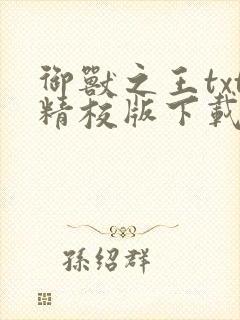 御獸之王txt
精校版下載
孫紹群